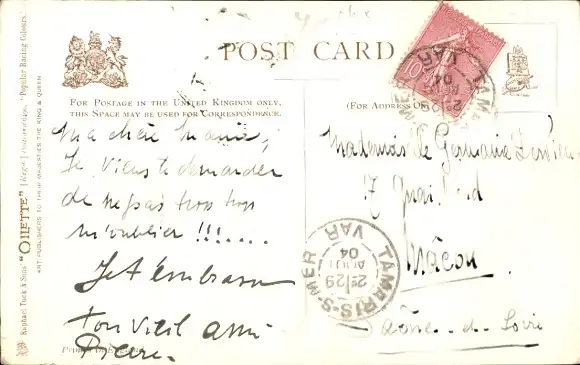 POST CARD
FOR POSTAGE IN THE UNITED KINGDOM ONLY,
THIS SPACE MAY BE USED FOR CORRESPONDENCE.
(FOR ADDRESS
Ma chère
Je viens te demander
de ne pas trop trop
m'oublier !!!.....
Je t'embrasse
ton vieil ami
Pierre.
Mademoiselle Germaine
17 Quai
Mâcon
Saône-et-Loire
TAMARIS-S-MER
VAR
2E/29
AOUT
04
TAMARIS-S-MER
VAR
04
10
Raphael Tuck & Sons "OILETTE" [Regd.] "Popular Racing Colours."
ART PUBLISHERS TO THEIR MAJESTIES THE KING & QUEEN